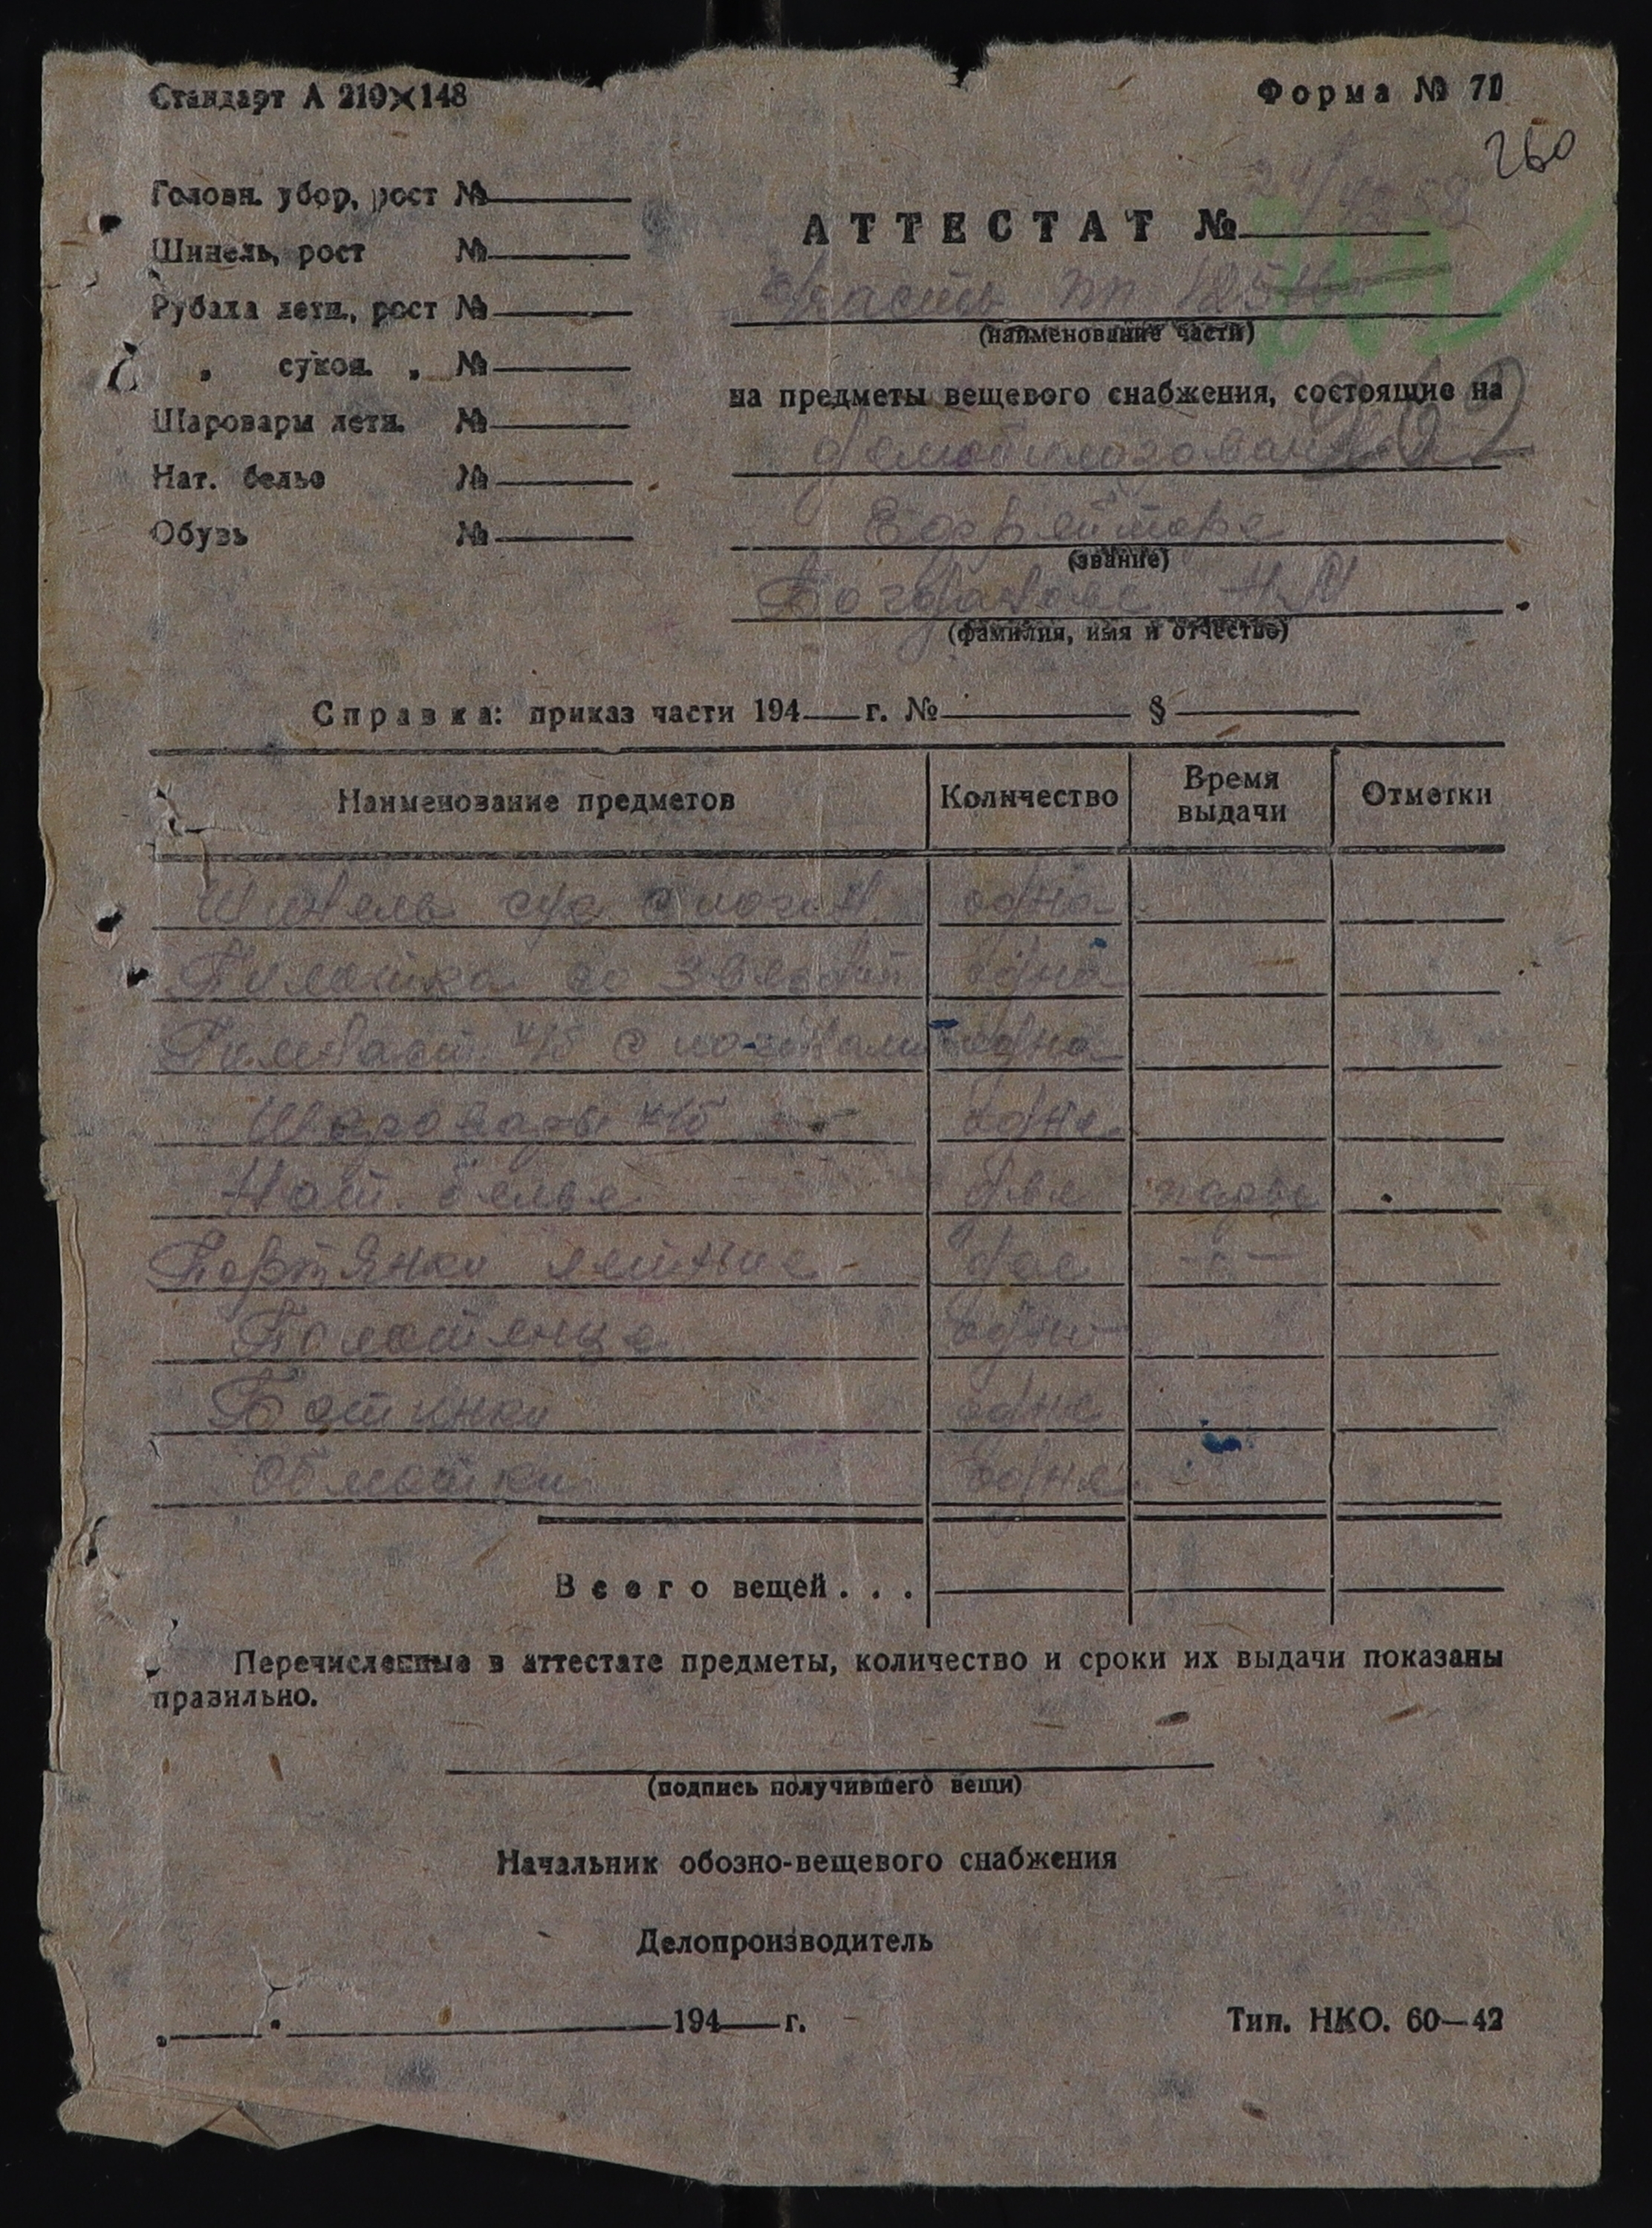 Стандарт А 210×148
Форма № 71
260
Головн. убор, рост №
Шинель, рост №
Рубаха летн., рост №
„ сукон. „ №
Шаровары летн. №
Нат. белье №
Обувь №
АТТЕСТАТ №
часть пп
(наименование части)
на предметы вещевого снабжения, состоящие на
(звание)
(фамилия, имя и отчество)
Справка: приказ части 194 г. № §
Наименование предметов Количество Время выдачи Отметки
Шинель одна
Пилотка со одна
Гимнаст. х/б с одна
Шаровары х/б одне
Нат. белье две пары
Портянки летние две
Полотенце
Ботинки одне
Обмотки одне
Всего вещей . . .
Перечисленные в аттестате предметы, количество и сроки их выдачи показаны
правильно.
(подпись получившего вещи)
Начальник обозно-вещевого снабжения
Делопроизводитель
„ “ 194 г.
Тип. НКО. 60—42